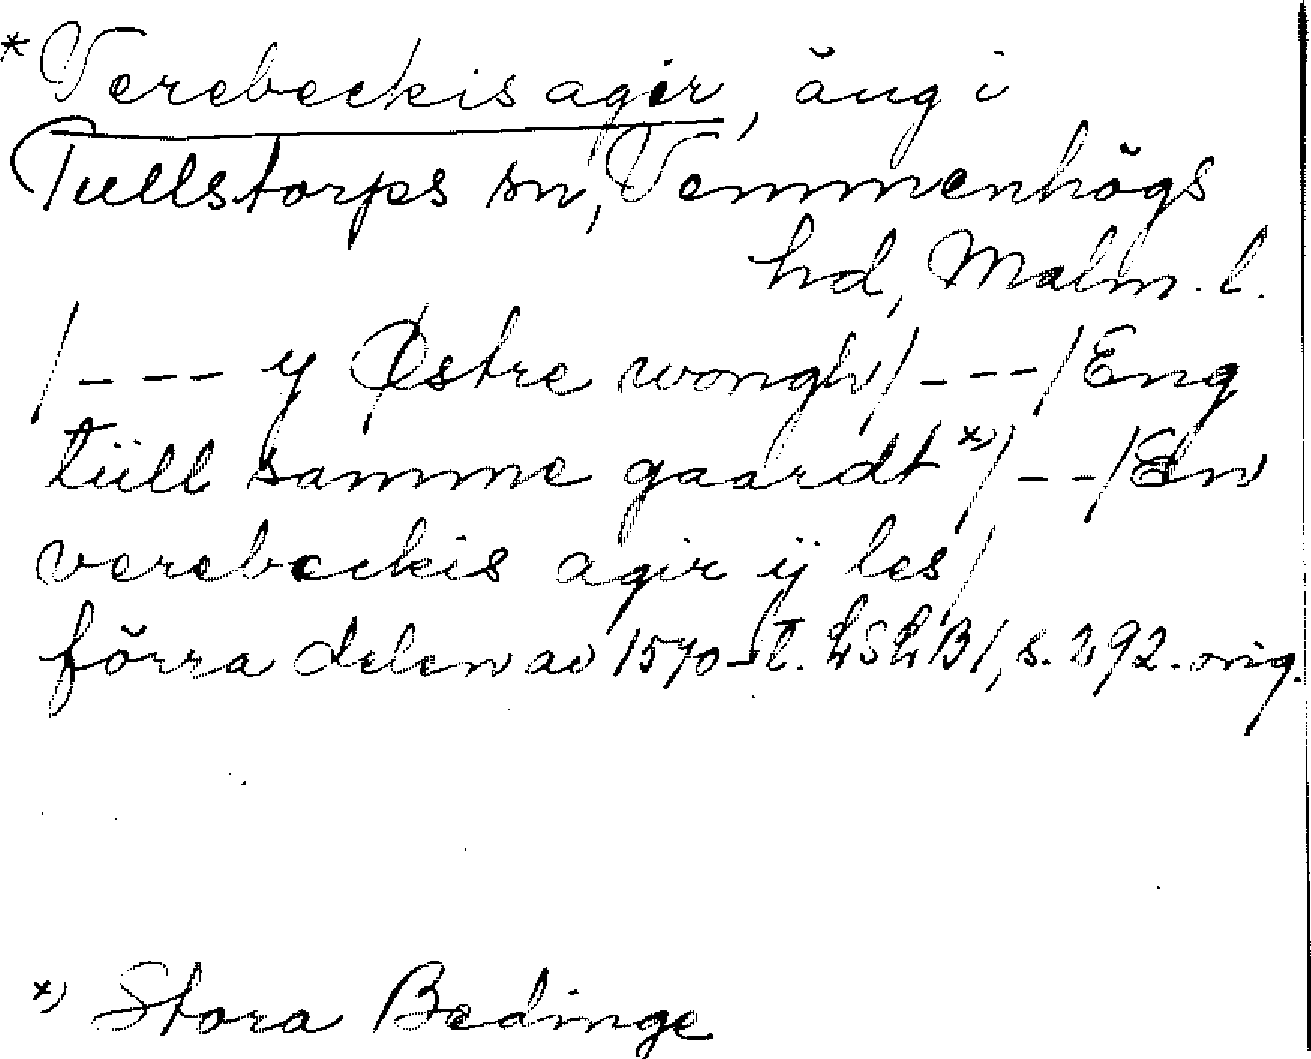 *Verebeckis agir, äng i
Tullstorps sn, Vemmenhögs
hd, Malm. l.
/---- y Østre wongh/---/Eng
tüll samme gaardt x)/--/En
verebeckis agir ij les/
förra delen av 1570-t. LSLB1, s. 292. orig.
x) Stora Bedinge